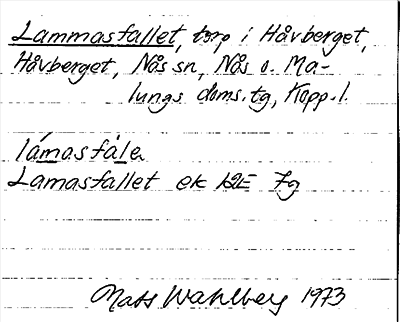 Lammasfallet, torp i Håvberget,
Håvberget, Nås sn, Nås o. Ma-
lungs doms.tg, Kopp.l.
lámasfàle
Lamasfallet ek
Mats Wahlberg 1973